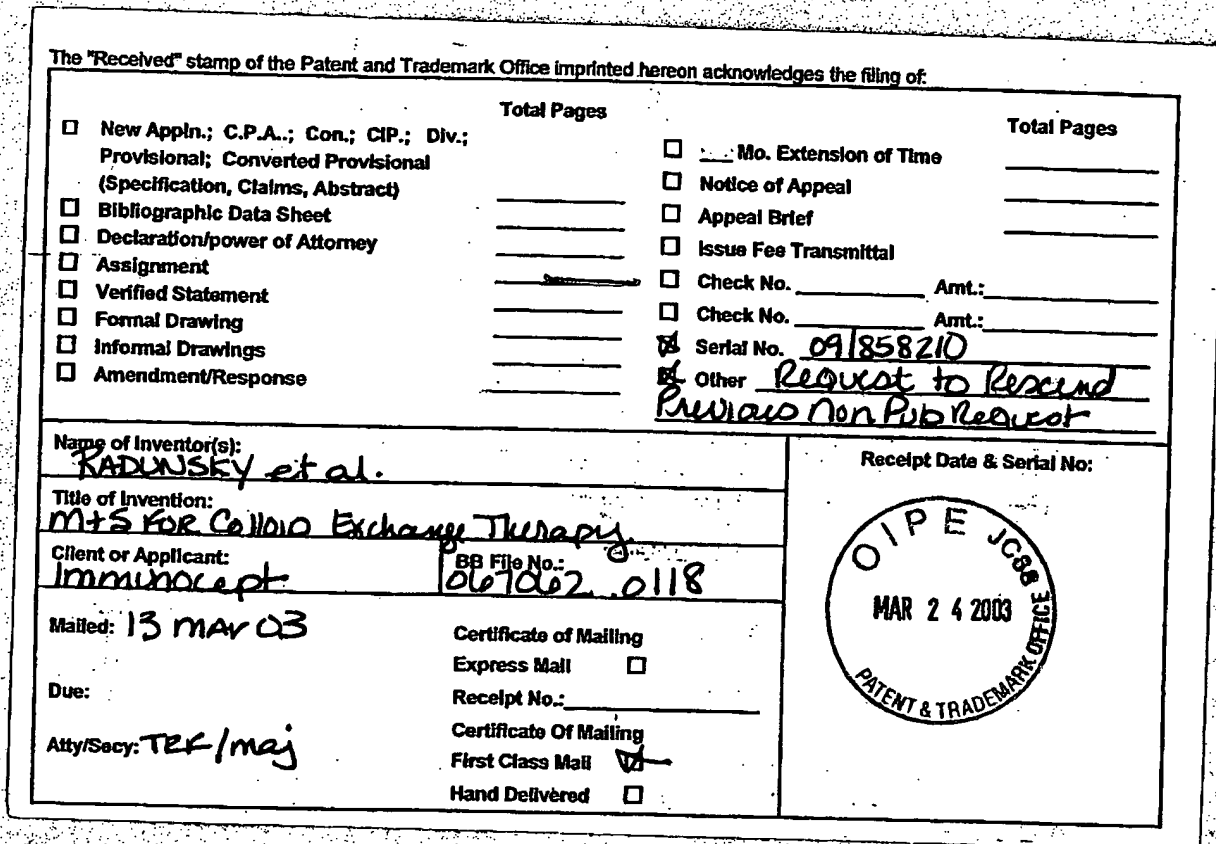 The "Received" stamp of the Patent and Trademark Office imprinted hereon acknowledges the filing of:
Total Pages
☐ New Appln.; C.P.A..; Con.; CIP.; Div.;
Provisional; Converted Provisional
(Specification, Claims, Abstract)
☐ Bibliographic Data Sheet
☐ Declaration/power of Attorney
☐ Assignment
☐ Verified Statement
☐ Formal Drawing
☐ Informal Drawings
☐ Amendment/Response
Total Pages
☐ ___ Mo. Extension of Time
☐ Notice of Appeal
☐ Appeal Brief
☐ Issue Fee Transmittal
☐ Check No. ________ Amt.: ________
☐ Check No. ________ Amt.: ________
☒ Serial No. 09/858210
☒ Other Request to Rescind
Previous Non Pub Request
Name of Inventor(s):
RADUNSKY et al.
Title of Invention:
M+S FOR Colloid Exchange Therapy
Client or Applicant:
Immunocept
BB File No.:
067062.0118
Mailed: 13 MAR 03
Due:
Atty/Secy: TRF/maj
Certificate of Mailing
Express Mail ☐
Receipt No.: ________
Certificate Of Mailing
First Class Mail ☑
Hand Delivered ☐
Receipt Date & Serial No:
OIPE JC88
MAR 24 2003
PATENT & TRADEMARK OFFICE